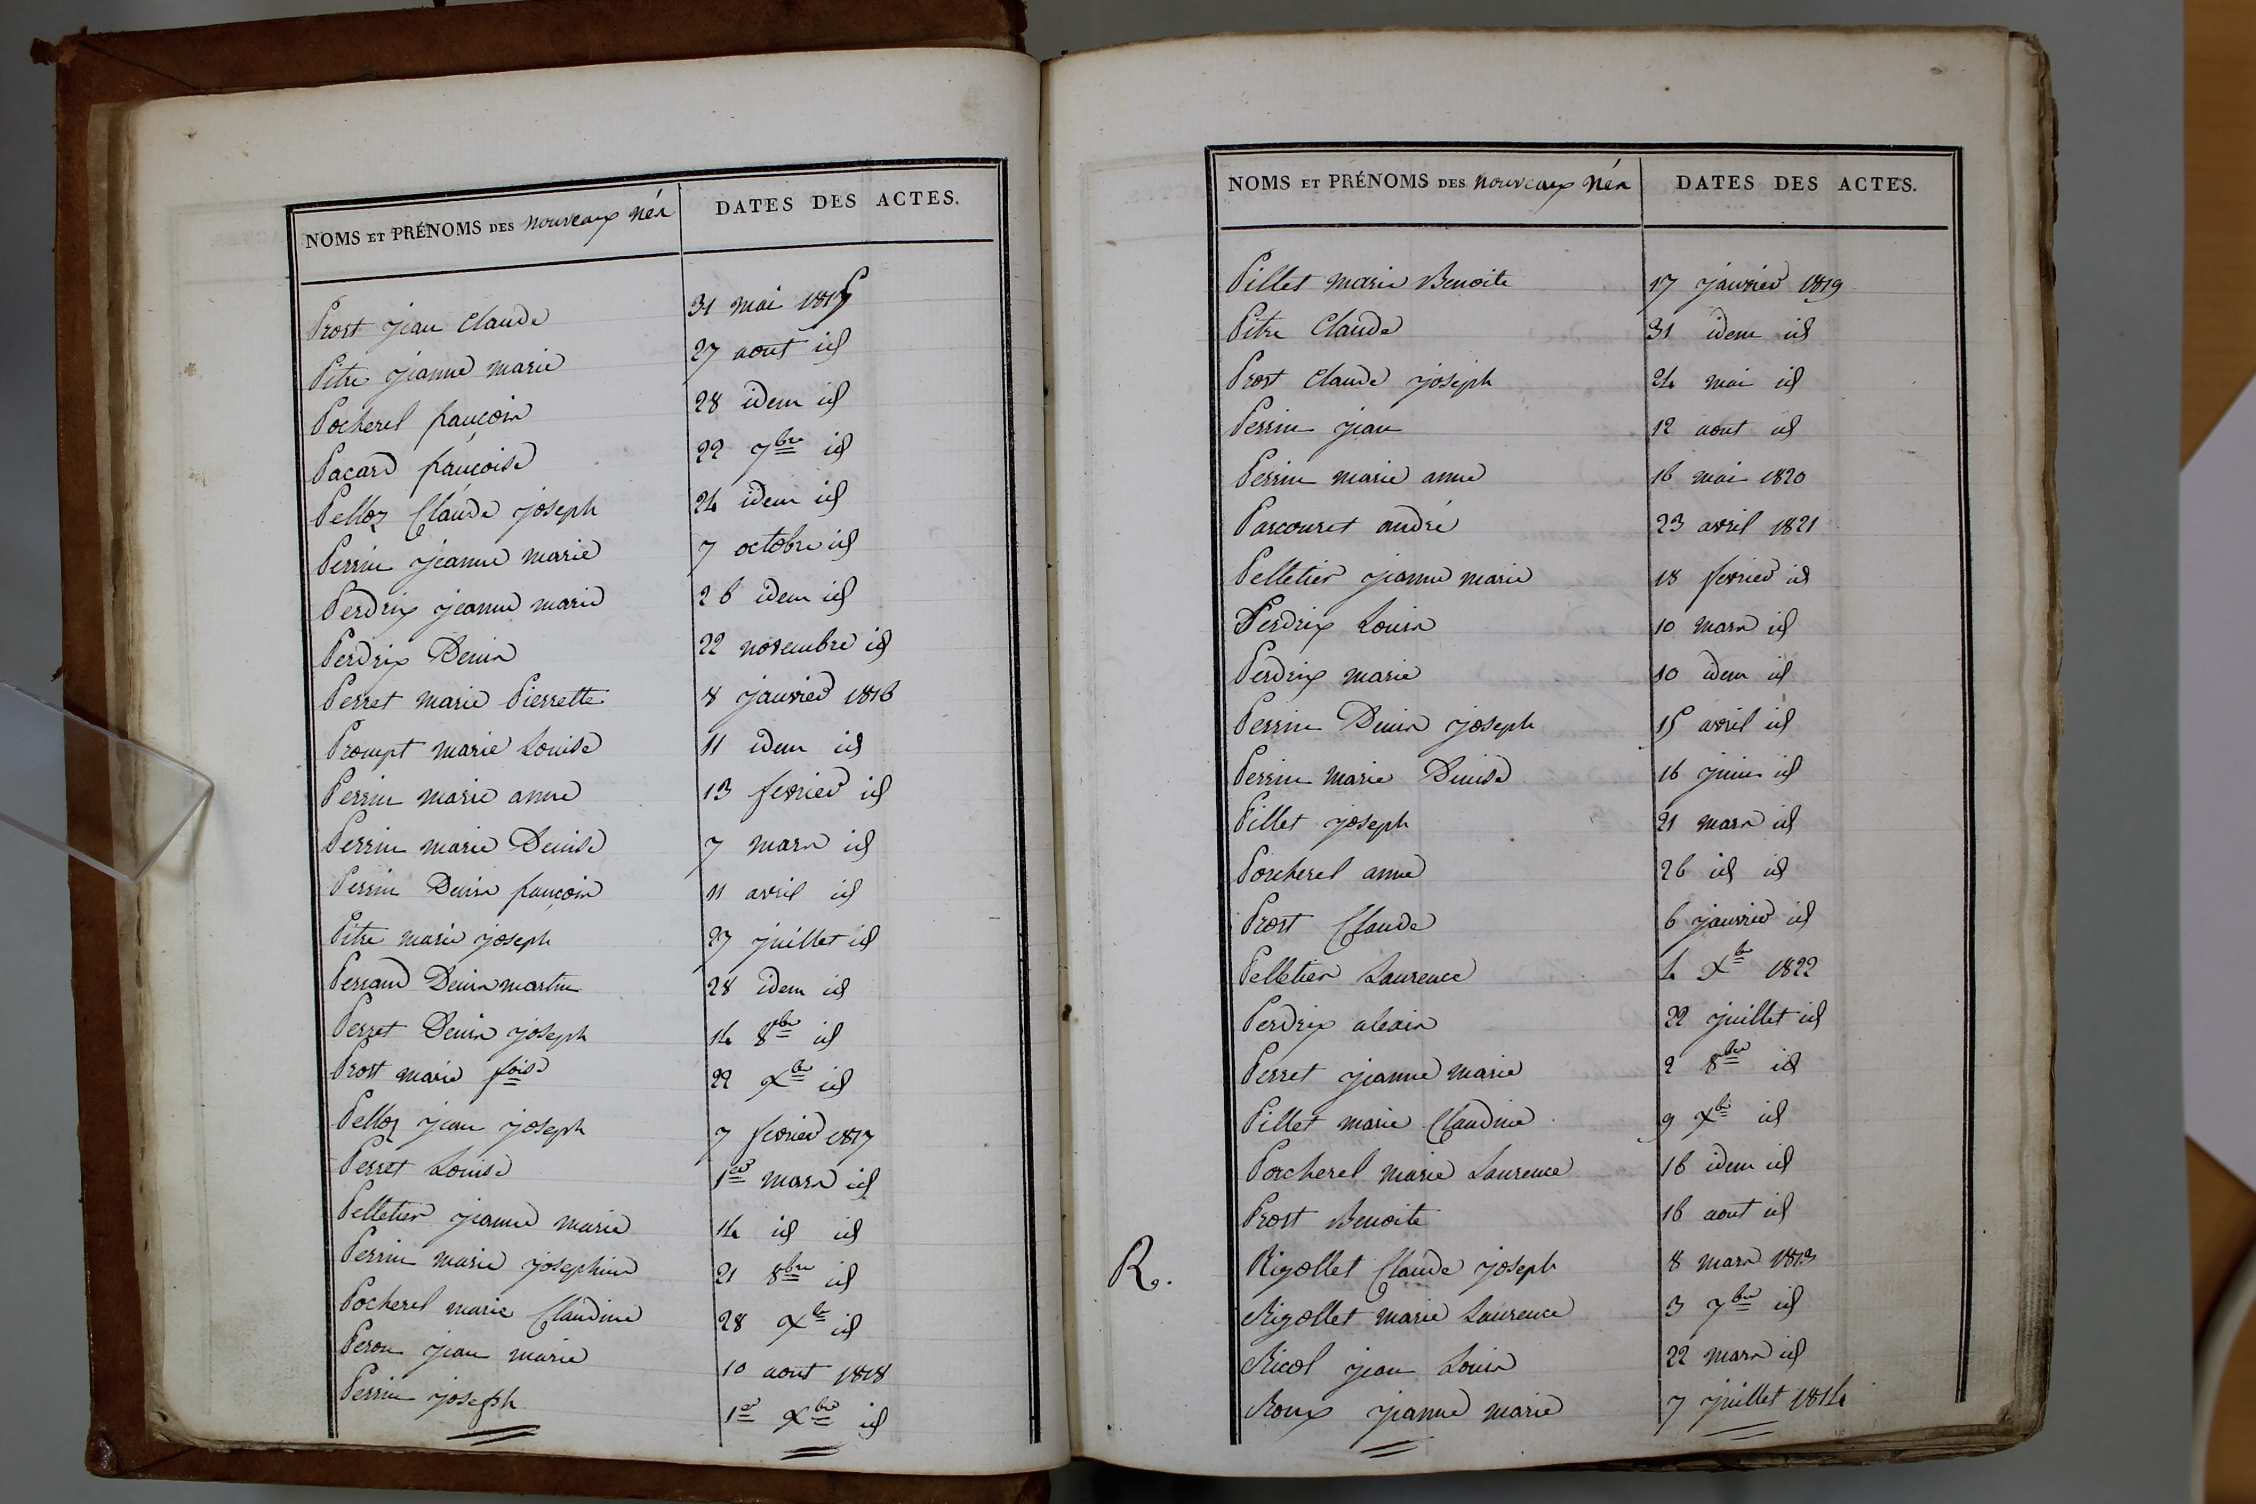 NOMS ET PRÉNOMS DES nouveaux nés | DATES DES ACTES.
Prost jean Claude 31 mai 1815
Pitre jeanne marie 27 aout id
Pocherel françois 28 idem id
Pacard françoise 22 7bre id
Pelloz Claude joseph 24 idem id
Perrin jeanne marie 7 octobre id
Perdrix jeanne marie 26 idem id
Perdrix Denis 22 novembre id
Perret marie Pierrette 8 janvier 1816
Prompt marie Louise 11 idem id
Perrin marie anne 13 fevrier id
Perrin marie Denise 7 mars id
Perrin Denis françois 11 avril id
Pitre marie joseph 27 juillet id
Perraud Denis martin 28 idem id
Perret Denis joseph 14 8bre id
Prost marie foise 22 xbre id
Pelloz jean joseph 7 fevrier 1817
Perret Louise 1er mars id
Pelletier jeanne marie 14 id id
Perrin marie josephine 21 8bre id
Pocherel marie Claudine 28 xbre id
Peron jean marie 10 aout 1818
Perrin joseph 1er xbre id
NOMS ET PRÉNOMS DES nouveaux nés | DATES DES ACTES.
Pillet marie Benoite 17 janvier 1819
Pitre Claude 31 idem id
Prost Claude joseph 24 mai id
Perrin jean 12 aout id
Perrin marie anne 16 mai 1820
Parcouret andré 23 avril 1821
Pelletier jeanne marie 18 fevrier id
Perdrix Louis 10 mars id
Perdrix marie 10 idem id
Perrin Denis joseph 15 avril id
Perrin marie Denise 16 juin id
Pillet joseph 21 mars id
Porcherel anne 26 id id
Prost Claude 6 janvier id
Pelletier Laurence 4 xbre 1822
Perdrix alexis 22 juillet id
Perret jeanne marie 2 8bre id
Pillet marie Claudine 9 xbre id
Porcherel marie Laurence 16 idem id
Prost Benoite 16 aout id
R. Rigollet Claude joseph 8 mars 1813
Rigollet marie Laurence 3 7bre id
Ricol jean Louis 22 mars id
Roux jeanne marie 7 juillet 1814